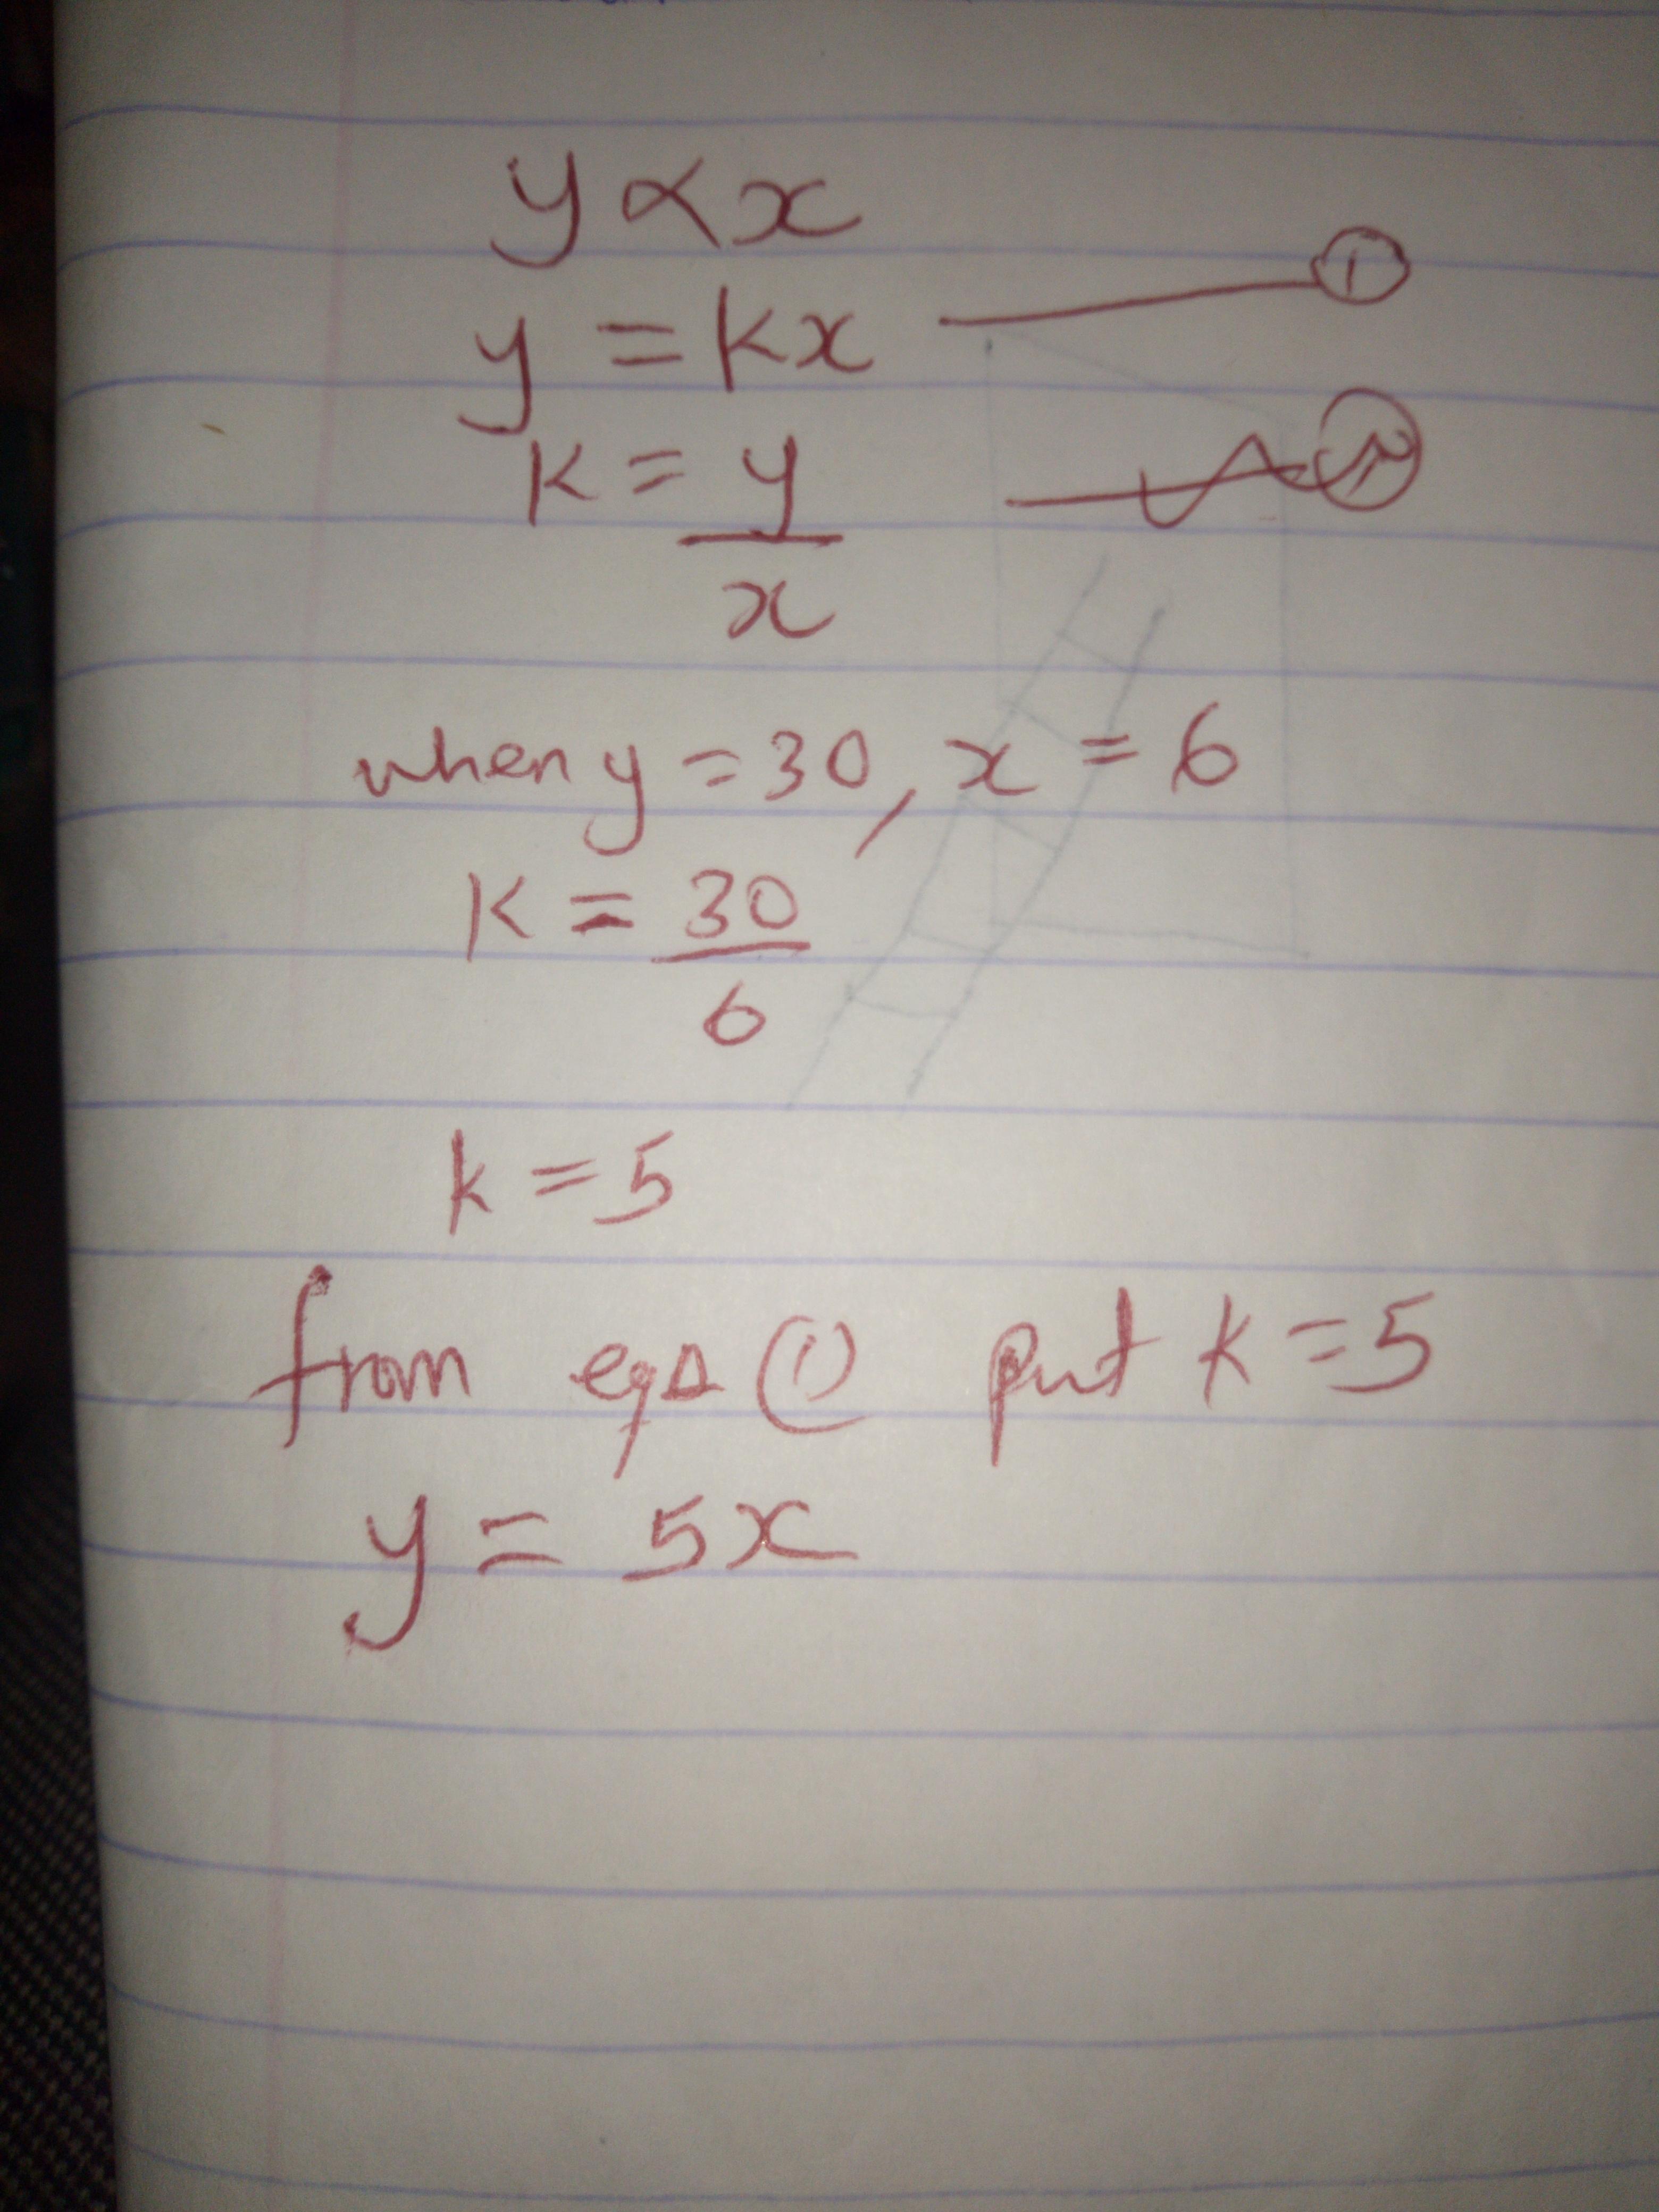 y ∝ x
y = kx ——— ①
k = y/x
when y = 30, x = 6
k = 30/6
k = 5
from eqn ① put k = 5
y = 5x